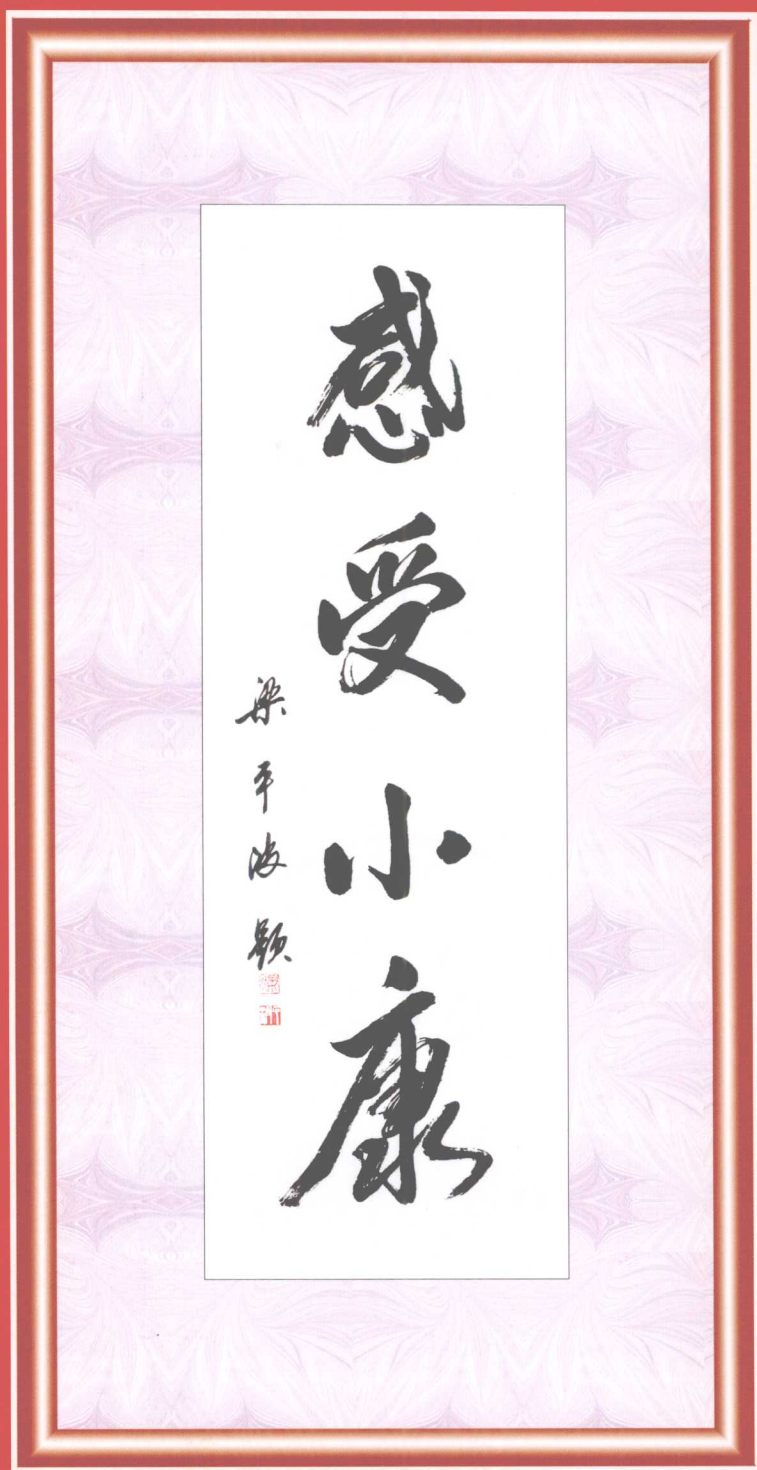 感受小康
梁平波题